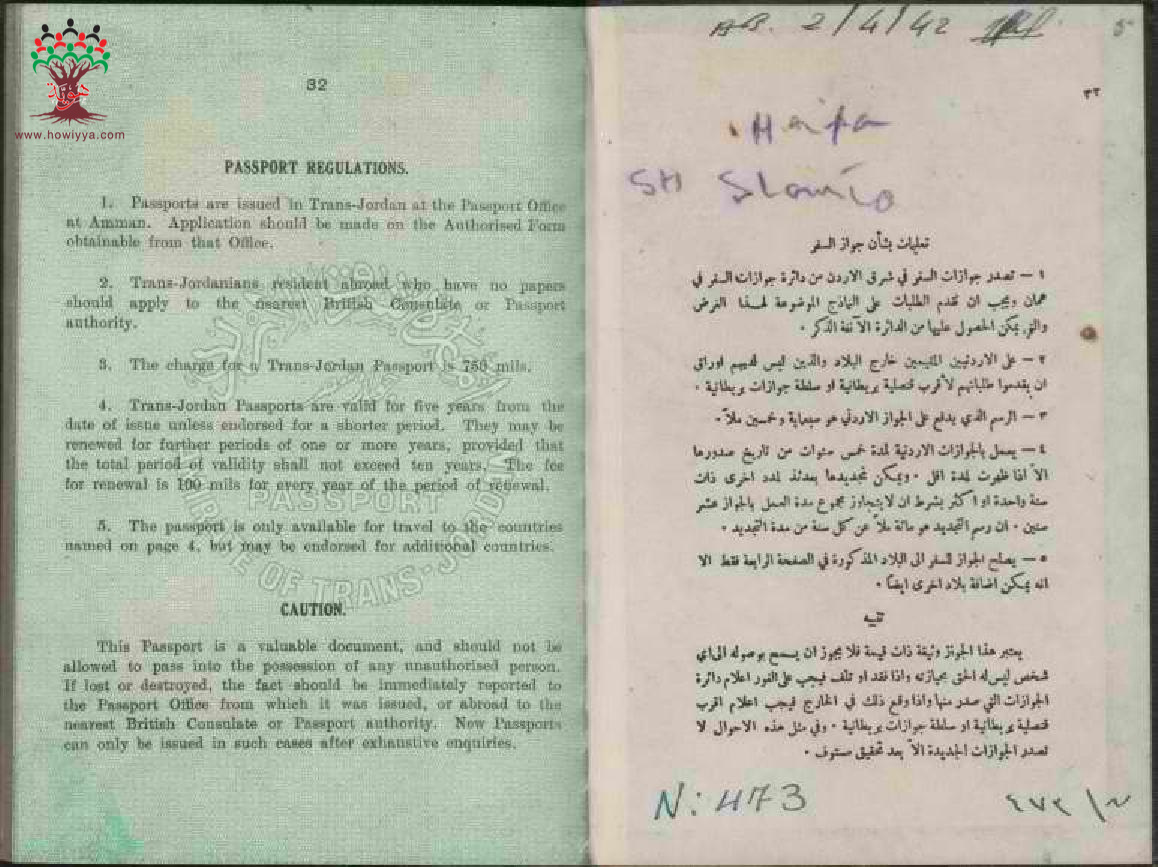 هوية
www.howiyya.com
32
PASSPORT REGULATIONS.
1. Passports are issued in Trans-Jordan at the Passport Office
at Amman. Application should be made on the Authorised Form
obtainable from that Office.
2. Trans-Jordanians resident abroad who have no papers
should apply to the nearest British Consulate or Passport
authority.
3. The charge for a Trans-Jordan Passport is 750 mils.
4. Trans-Jordan Passports are valid for five years from the
date of issue unless endorsed for a shorter period. They may be
renewed for further periods of one or more years, provided that
the total period of validity shall not exceed ten years. The fee
for renewal is 100 mils for every year of the period of renewal.
5. The passport is only available for travel to the countries
named on page 4, but may be endorsed for additional countries.
PASSPORT
OF TRANS-JORDAN
CAUTION.
This Passport is a valuable document, and should not be
allowed to pass into the possession of any unauthorised person.
If lost or destroyed, the fact should be immediately reported to
the Passport Office from which it was issued, or abroad to the
nearest British Consulate or Passport authority. New Passports
can only be issued in such cases after exhaustive enquiries.
AB. 2/4/42
5
٣٢
Haifa
SH
تعليمات بشأن جواز السفر
١ — تصدر جوازات السفر في شرق الاردن من دائرة جوازات السفر في
عمان ويجب ان تقدم الطلبات على النماذج الموضوعة لهذا الغرض
والتي يمكن الحصول عليها من الدائرة الآنفة الذكر .
٢ — على الاردنيين المقيمين خارج البلاد والذين ليس لديهم اوراق
ان يقدموا طلباتهم لأقرب قنصلية بريطانية او سلطة جوازات بريطانية .
٣ — الرسم الذي يدفع على الجواز الاردني هو سبعماية وخمسين ملاً .
٤ — يعمل بالجوازات الاردنية لمدة خمس سنوات من تاريخ صدورها
الاّ اذا ظهرت لمدة اقل . ويمكن تجديدها بعدئذ لمدد اخرى ذات
سنة واحدة او اكثر بشرط ان لا يتجاوز مجموع مدة العمل بالجواز عشر
سنين . ان رسم التجديد هو مائة ملاً عن كل سنة من مدة التجديد .
٥ — يصلح الجواز للسفر الى البلاد المذكورة في الصفحة الرابعة فقط الا
انه يمكن اضافة بلاد اخرى ايضاً .
تنبيه
يعتبر هذا الجواز وثيقة ذات قيمة فلا يجوز ان يسمح بوصوله الى اي
شخص ليس له الحق بحيازته واذا فقد او تلف فيجب على الفور اعلام دائرة
الجوازات التي صدر منها واذا وقع ذلك في الخارج فيجب اعلام اقرب
قنصلية بريطانية او سلطة جوازات بريطانية . وفي مثل هذه الاحوال لا
تصدر الجوازات الجديدة الاّ بعد تحقيق مستوف .
N: 473